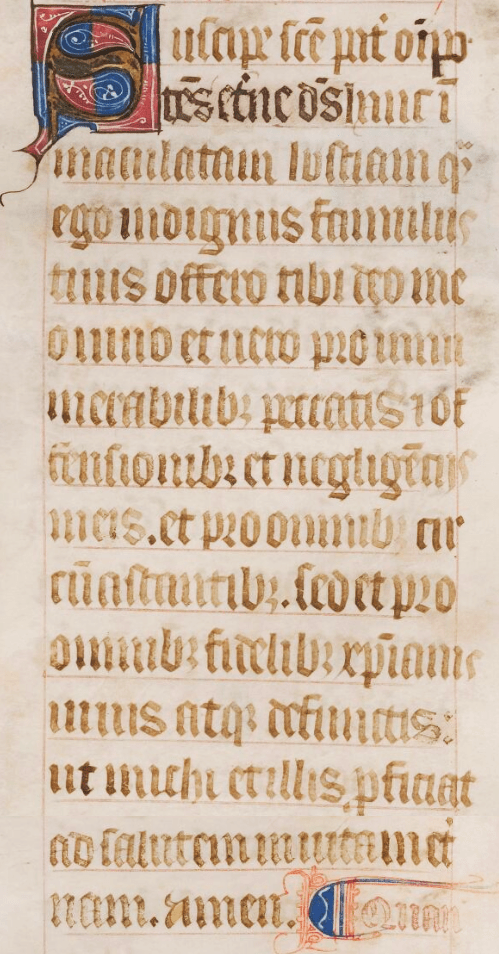 Suscipe scē pat̄ om̄p
tēs et̄ne d̄s hanc ī
maculatam hostiam qͣ
ego indignus famulus
tuus offero tibi deo me
o uiuo et uero pro innu
merabilibꝫ peccatis ⁊ of
fensionibꝫ et negligētiis
meis. et pro omnibꝫ cir
cūastantibꝫ. sed et pro
omnibꝫ fidelibꝫ xp̄ianis
uiuis atqꝫ defunctis:
ut michi et illis ꝓficiat
ad salutem in uitam et̾
nam. amen. Quan